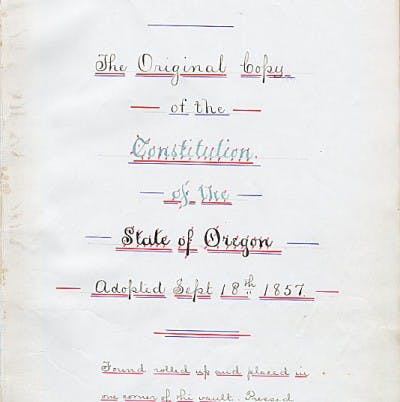 The Original Copy
of the
Constitution.
of the
State of Oregon
Adopted Sept 18th 1857.
Found rolled up and placed in
one corner of the vault. Pressed